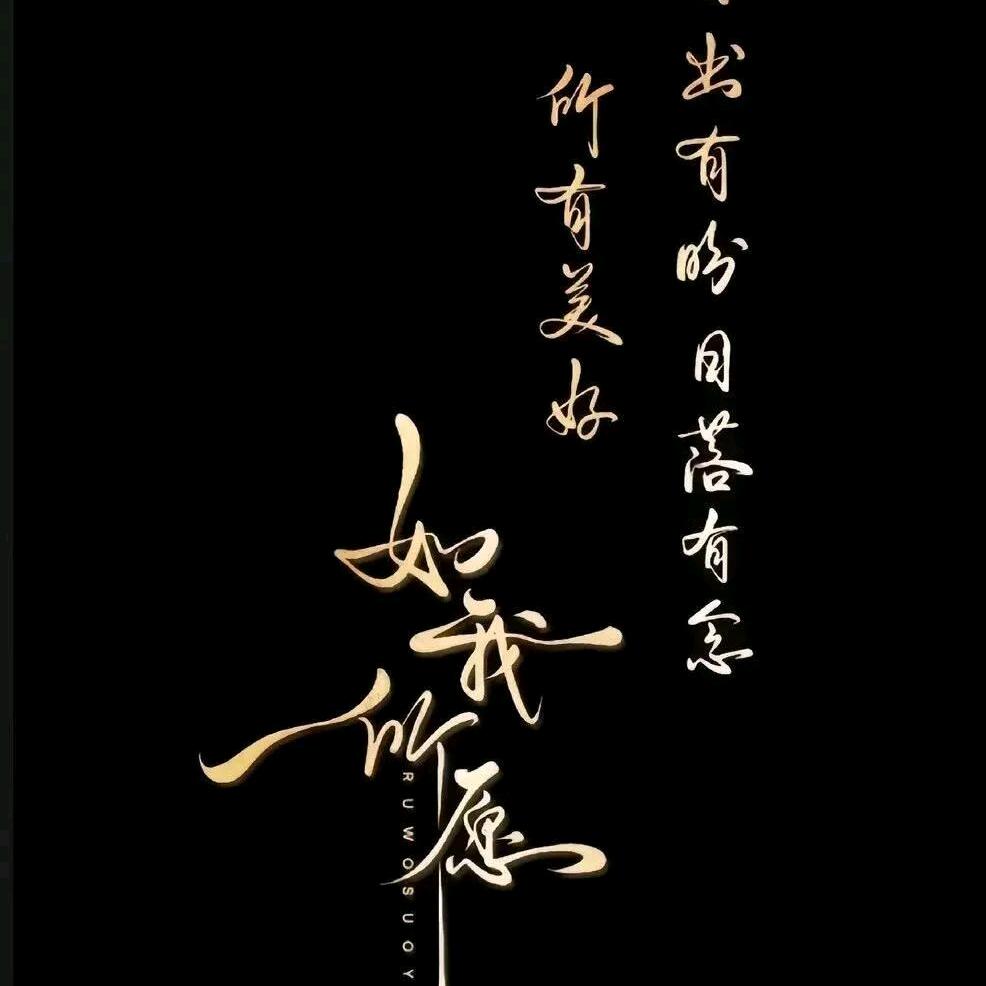 出有盼日落有念
所有美好
如我所愿
RUWOSUOY